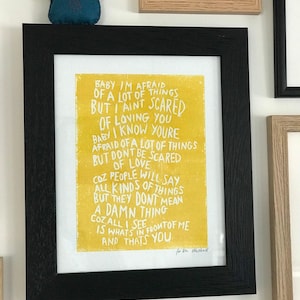 BABY I'M AFRAID
OF A LOT OF THINGS
BUT I AINT SCARED
OF LOVING YOU
BABY I KNOW YOURE
AFRAID OF A LOT OF THINGS
BUT DONT BE SCARED
OF LOVE
COZ PEOPLE WILL SAY
ALL KINDS OF THINGS
BUT THEY DONT MEAN
A DAMN THING
COZ ALL I SEE
IS WHATS IN FRONT OF ME
AND THATS YOU